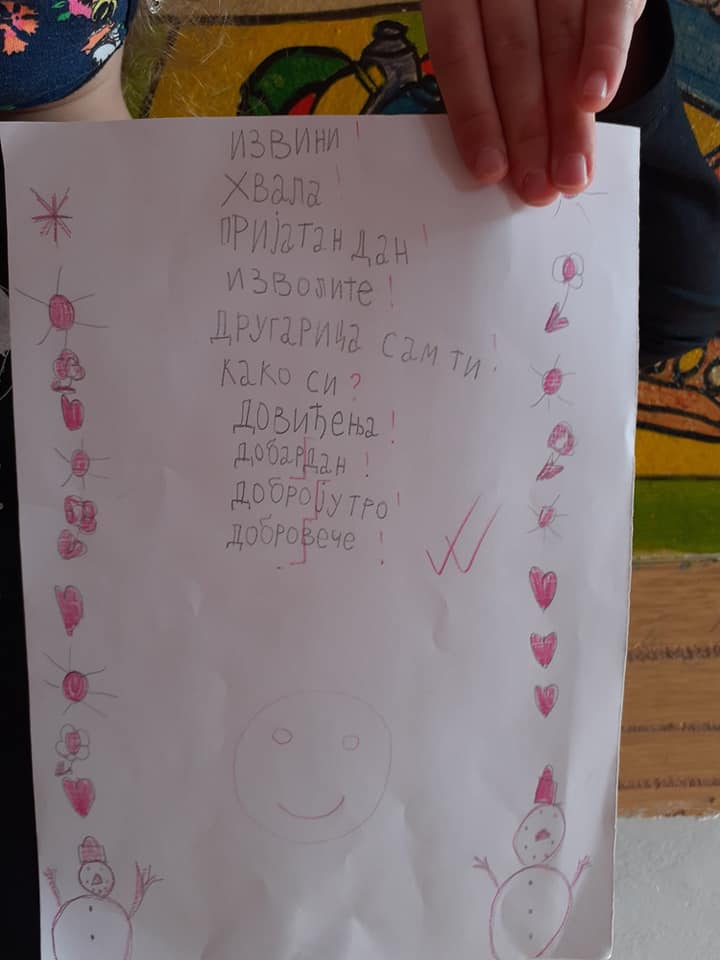 ИЗВИНИ!
ХВАЛА!
ПРИЈАТАН ДАН!
ИЗВОЛИТЕ!
ДРУГАРИЦА САМ ТИ!
КАКО СИ?
ДОВИЂЕЊА!
ДОБАРДАН!
ДОБРОЈУТРО!
ДОБРОВЕЧЕ!